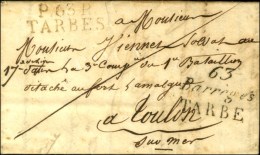 P. 63. P.
TARBES
a Monsieur
Monsieur Viennet Soldat au
17 3e Compgie du 1er Bataillon
détaché au fort Lamalgue
63
Barrèges
TARBE
a Toulon
Sur mer